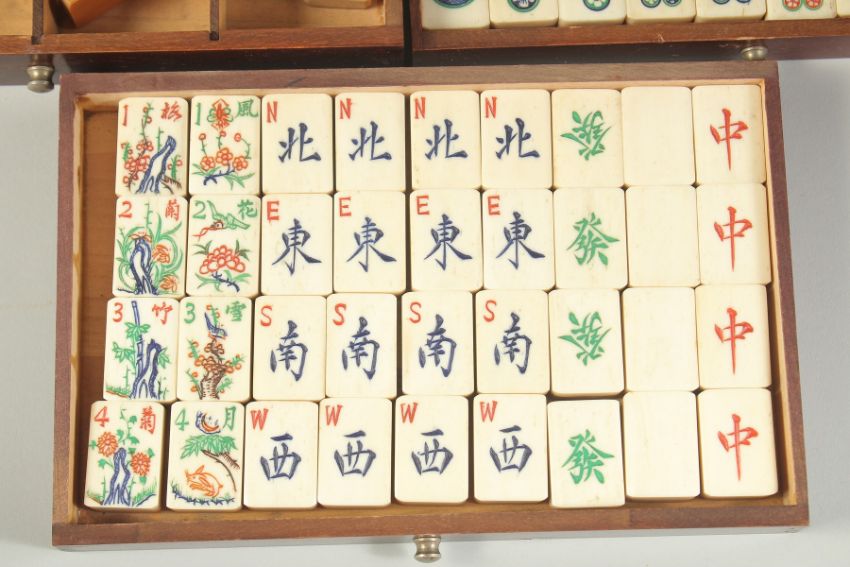 1 梅 1 風 N 北 N 北 N 北 N 北 發 中
2 蘭 2 花 E 東 E 東 E 東 E 東 發 中
3 竹 3 雪 S 南 S 南 S 南 S 南 發 中
4 菊 4 月 W 西 W 西 W 西 W 西 發 中